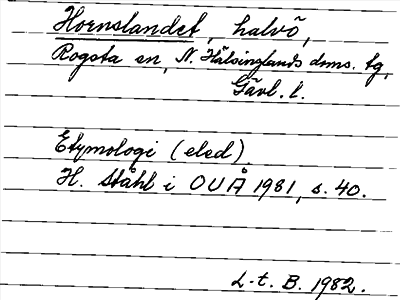 Hornslandet, halvö,
Rogsta sn, N. Hälsinglands dms. tg,
Gävl. l.
Etymologi (eled).
H. Ståhl i OUÅ 1981, s. 40.
L-t. B. 1982.